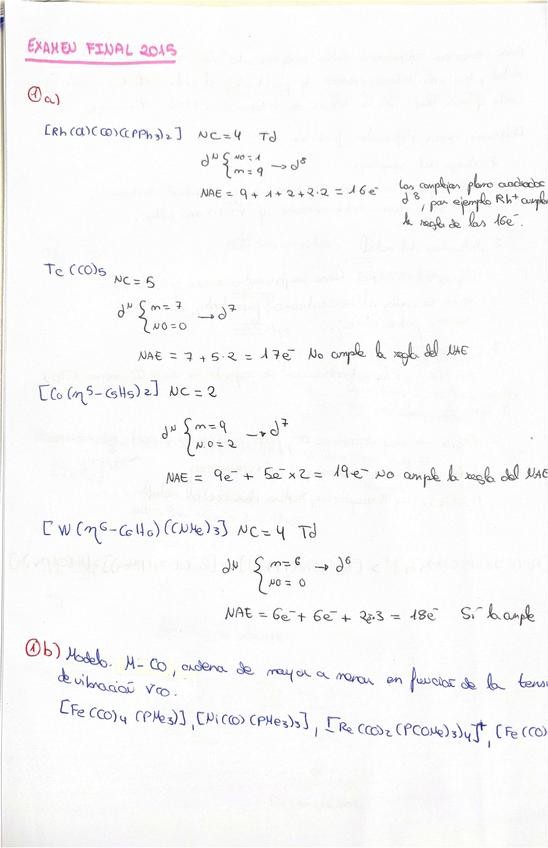 EXAMEN FINAL 2015
1 a)
[Rh(Cl)(CO)(PPh3)2] NC=4 Td
dᴺ { NO=1
m=9 → d⁸
NAE = 9+1+2+2·2 = 16e⁻
Los complejos plano cuadrados
d⁸, por ejemplo Rh⁺ cumple
la regla de los 16e⁻.
Tc(CO)5 NC=5
dᴺ { m=7
NO=0 → d⁷
NAE = 7+5·2 = 17e⁻ No cumple la regla del NAE
[Co(η5-C5H5)2] NC=2
dᴺ { m=9
N.O=2 → d⁷
NAE = 9e⁻ + 5e⁻x2 = 19e⁻ No cumple la regla del NAE
[W(η6-C6H6)(CNMe)3] NC=4 Td
dᴺ { m=6
NO=0 → d⁶
NAE = 6e⁻+6e⁻+2·3 = 18e⁻ Sí la cumple
1 b) Modelo. M-CO, ordena de mayor a menor en función de la
de vibración νCO.
[Fe(CO)4(PMe3)], [Ni(CO)(PMe3)3], [Re(CO)2(PCOMe)3)4]⁺, [Fe(CO)